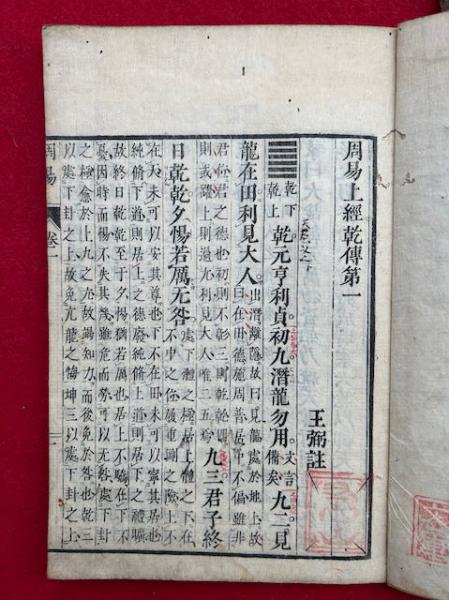 周易上經乾傳第一
王弼註
䷀ 乾下
乾上
乾元亨利貞初九潛龍勿用
文言
備矣
九二見
龍在田利見大人
出潛離隱故曰見龍處於地上故
曰在田德施周普居中不偏雖非
君位君之德也初則不彰三則乾乾四
則或躍上則過亢利見大人唯二五焉
九三君子終
日乾乾夕惕若厲无咎
處下體之極居上體之下在
不中之位履重剛之險上不
在天未可以安其尊也下不在田未可以寧其居也
純脩下道則居上之德廢純脩上道則處下之禮曠
故終日乾乾至于夕惕猶若厲也居上不驕在下不
憂因時而惕不失其幾雖危而勞可以无咎處下卦
之極愈於上九之亢故竭知力而後免於咎也乾三
以處下卦之上故免亢龍之悔坤三以處下卦之上
周易
卷一
一